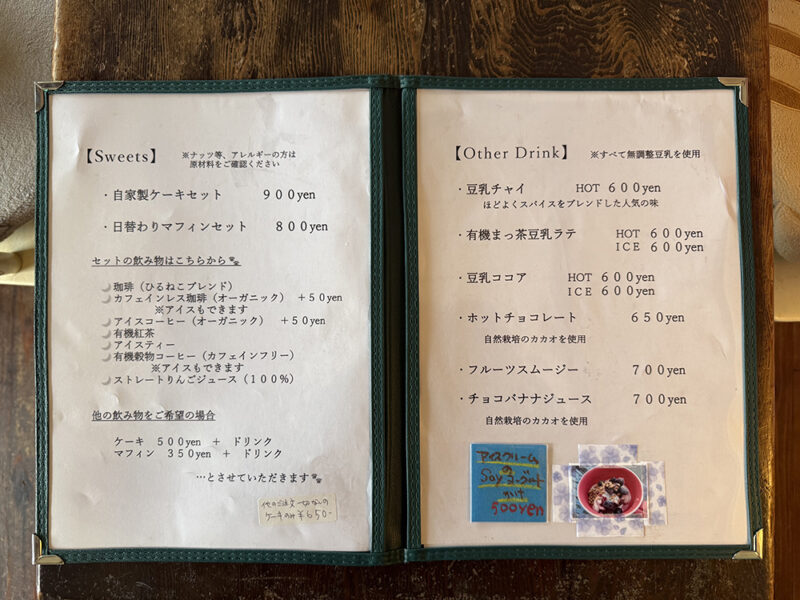 【Sweets】
※ナッツ等、アレルギーの方は
原材料をご確認ください
・自家製ケーキセット 900yen
・日替わりマフィンセット 800yen
セットの飲み物はこちらから
珈琲（ひるねこブレンド）
カフェインレス珈琲（オーガニック） +50yen
※アイスもできます
アイスコーヒー（オーガニック） +50yen
有機紅茶
アイスティー
有機穀物コーヒー（カフェインフリー）
※アイスもできます
ストレートりんごジュース（100%）
他の飲み物をご希望の場合
ケーキ 500yen + ドリンク
マフィン 350yen + ドリンク
…とさせていただきます
他のご注文一切なしの
ケーキのみ ¥650-
【Other Drink】 ※すべて無調整豆乳を使用
・豆乳チャイ HOT 600yen
ほどよくスパイスをブレンドした人気の味
・有機まっ茶豆乳ラテ HOT 600yen
ICE 600yen
・豆乳ココア HOT 600yen
ICE 600yen
・ホットチョコレート 650yen
自然栽培のカカオを使用
・フルーツスムージー 700yen
・チョコバナナジュース 700yen
自然栽培のカカオを使用
アイスクリーム
の
Soyヨーグルト
かけ
500yen